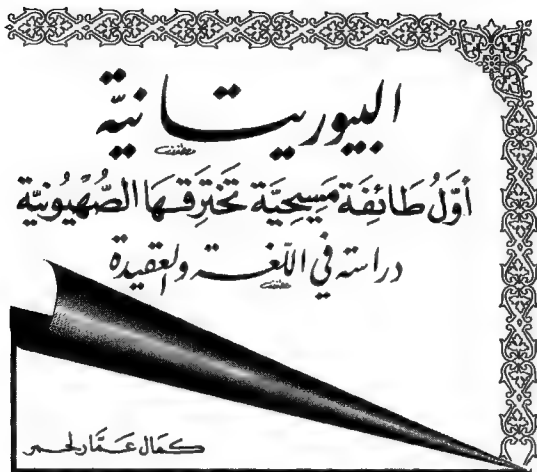 البيوريتانية
أوّل طَائِفَة مَسِيحيَّة تَختَرِقَهَا الصُّهْيُونيَّة
دراسة في اللّغة والعقيدة
كمال عمّار لحمر